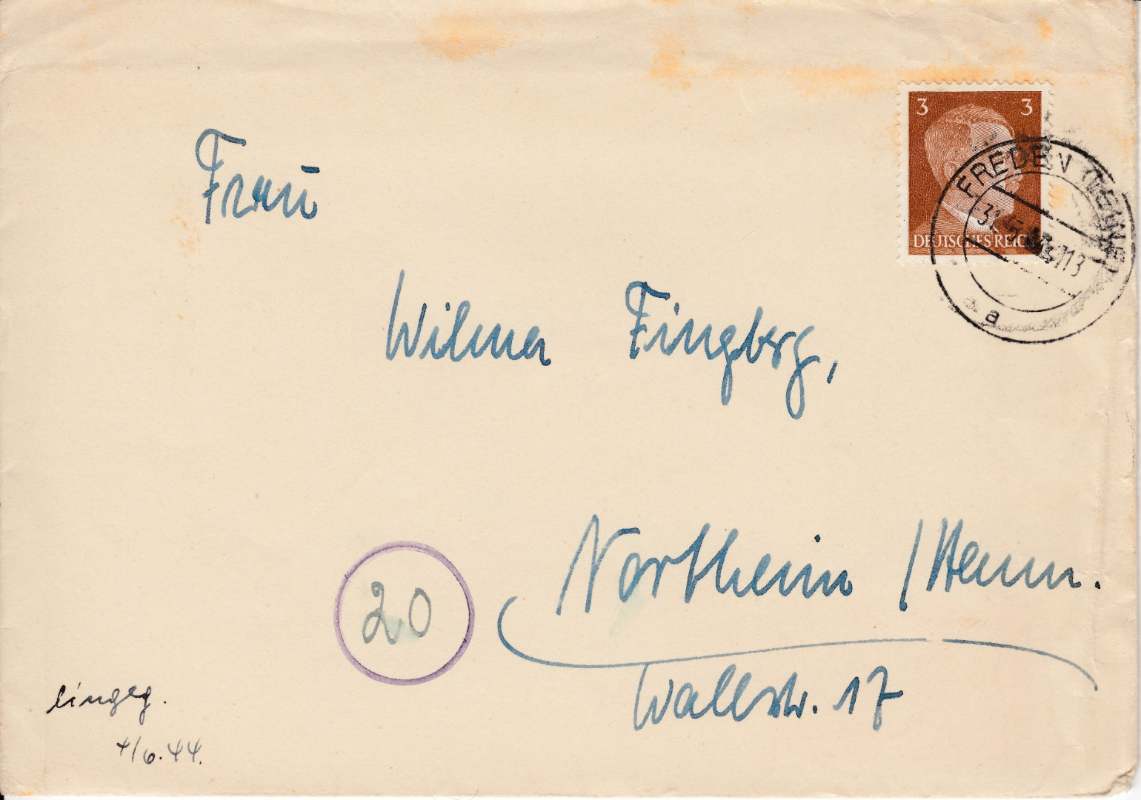 3 3
DEUTSCHES REICH
FREDEN (LEINE)
a
Frau
Wilma Fingberg,
Northeim / Hann.
20
Wallstr. 17
eingeg.